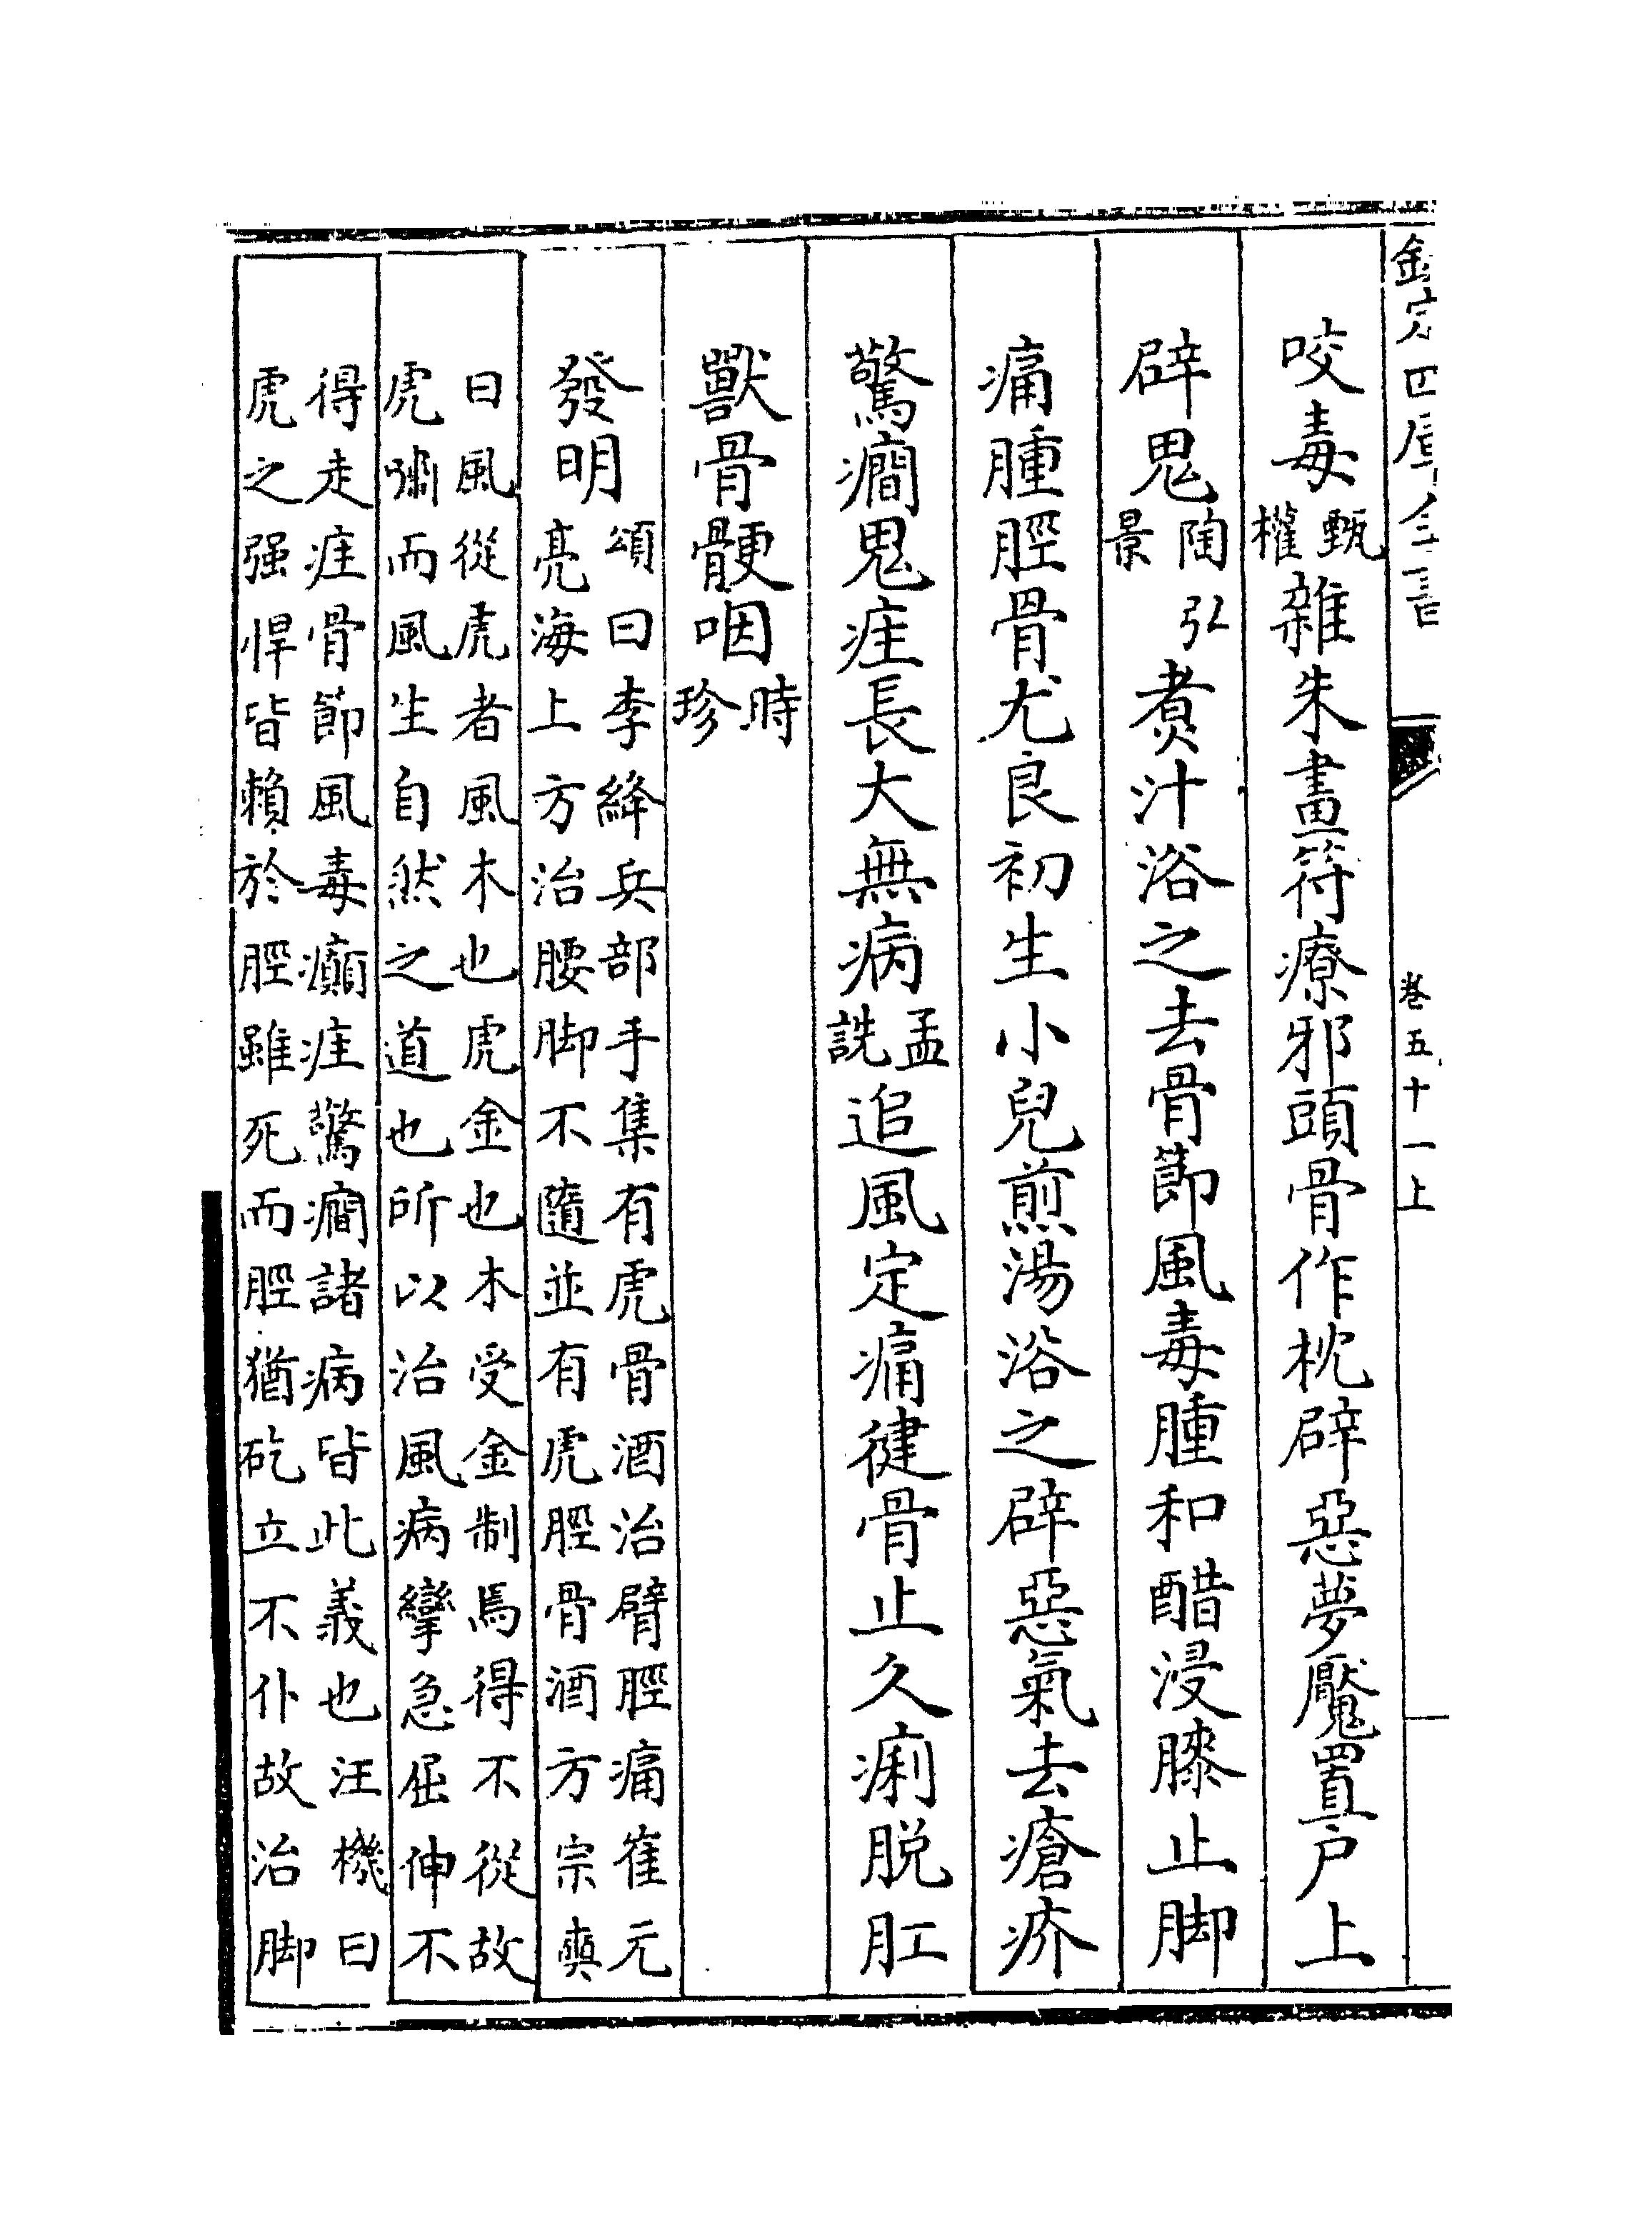 欽定四庫全書
卷五十一上
咬毒甄權雜朱畫符療邪頭骨作枕辟惡夢魘置户上
辟鬼陶弘景煑汁浴之去骨節風毒腫和醋浸膝止脚
痛腫脛骨尤良初生小兒煎湯浴之辟惡氣去瘡疥
驚癇鬼疰長大無病孟詵追風定痛徤骨止久痢脱肛
獸骨骾咽時珍
發明
頌曰李絳兵部手集有虎骨酒治臂脛痛崔元
亮海上方治腰脚不隨並有虎脛骨酒方宗奭
曰風從虎者風木也虎金也木受金制焉得不從故
虎嘯而風生自然之道也所以治風病攣急屈伸不
得走疰骨節風毒癲疰驚癇諸病皆此義也汪機曰
虎之强悍皆賴於脛雖死而脛猶矻立不仆故治脚